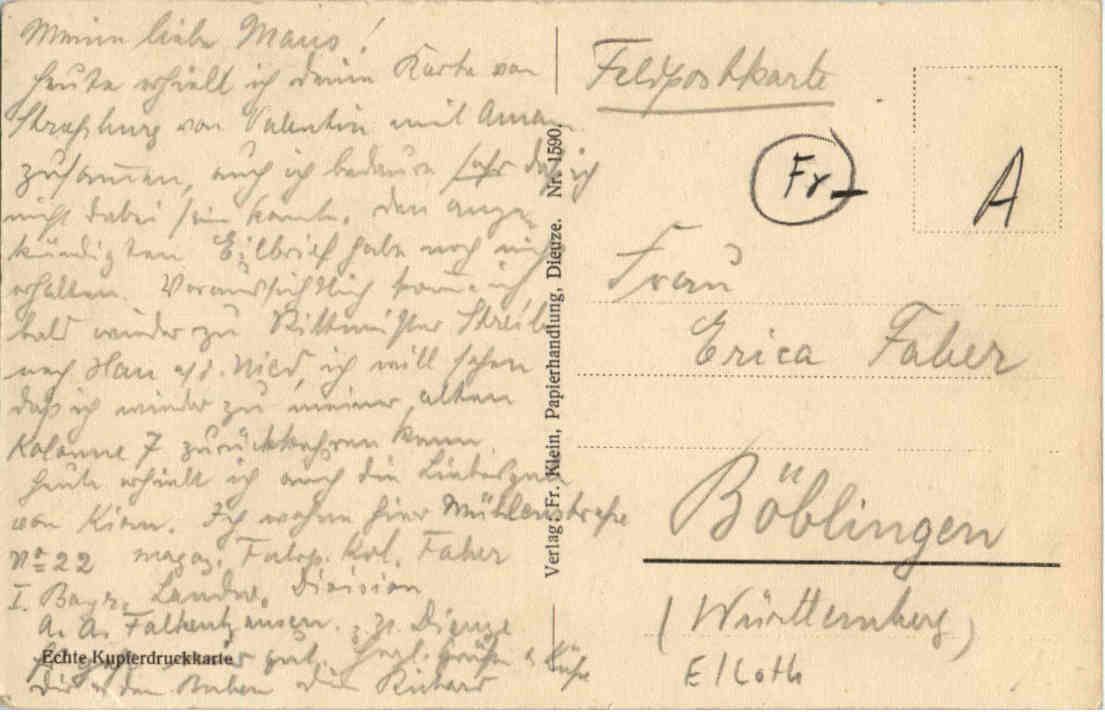 Meine liebe Maus!
Heute erhielt ich deine Karte von
Straßburg von Valentin mit
zusammen, auch ich bedaure sehr daß ich
nicht dabei sein konnte. Den ange-
kündigten Eilbrief habe noch nicht
erhalten. Voraussichtlich komme ich
bald wieder zu Rittmeister
nach Han a/d. Nied, ich will sehen
daß ich wieder zu meiner alten
Kolonne 7 zurückkehren kann.
Heute erhielt ich auch die
von. Ich wohne hier Mühlenstraße
No 22 Magaz. Fuhrp. Kol. Faber
I. Bayr. Landw. Division
A. A. Falkenhausen. z. Zt. Dieuze
geht gut. Herzl. Grüße & Küsse
Dir & den Buben Dein Richard
Echte Kupferdruckkarte
Verlag: Fr. Klein, Papierhandlung, Dieuze. Nr. 1590.
Feldpostkarte
Fr.
A
Frau
Erica Faber
Böblingen
(Württemberg)
E/Loth